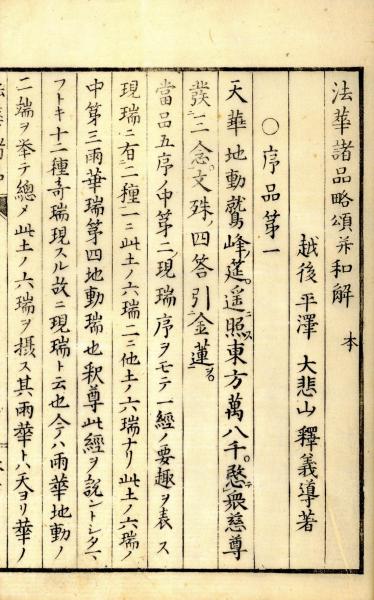 法華諸品略頌并和解 本
越後 平澤 大悲山 釋義導著
○序品第一
天華地動鷲峰莚。遥照ニス東方萬八千。愍ニテ衆慈尊
發ス三念。文殊ノ四答引ニク金蓮。
當品五序ノ中第二現瑞序ヲモテ一經ノ要趣ヲ表ス
現瑞ニ有ニ二種一ニ此土ノ六瑞二ニ他土ノ六瑞ナリ此土ノ六瑞ノ
中第三雨華瑞第四地動瑞也釈尊此經ヲ説ントシタマ
フトキ十二種ノ奇瑞現スル故ニ現瑞ト云也今ハ雨華地動ノ
二端ヲ挙テ總メ此土ノ六瑞ヲ摂ス其雨華トハ天ヨリ華ノ